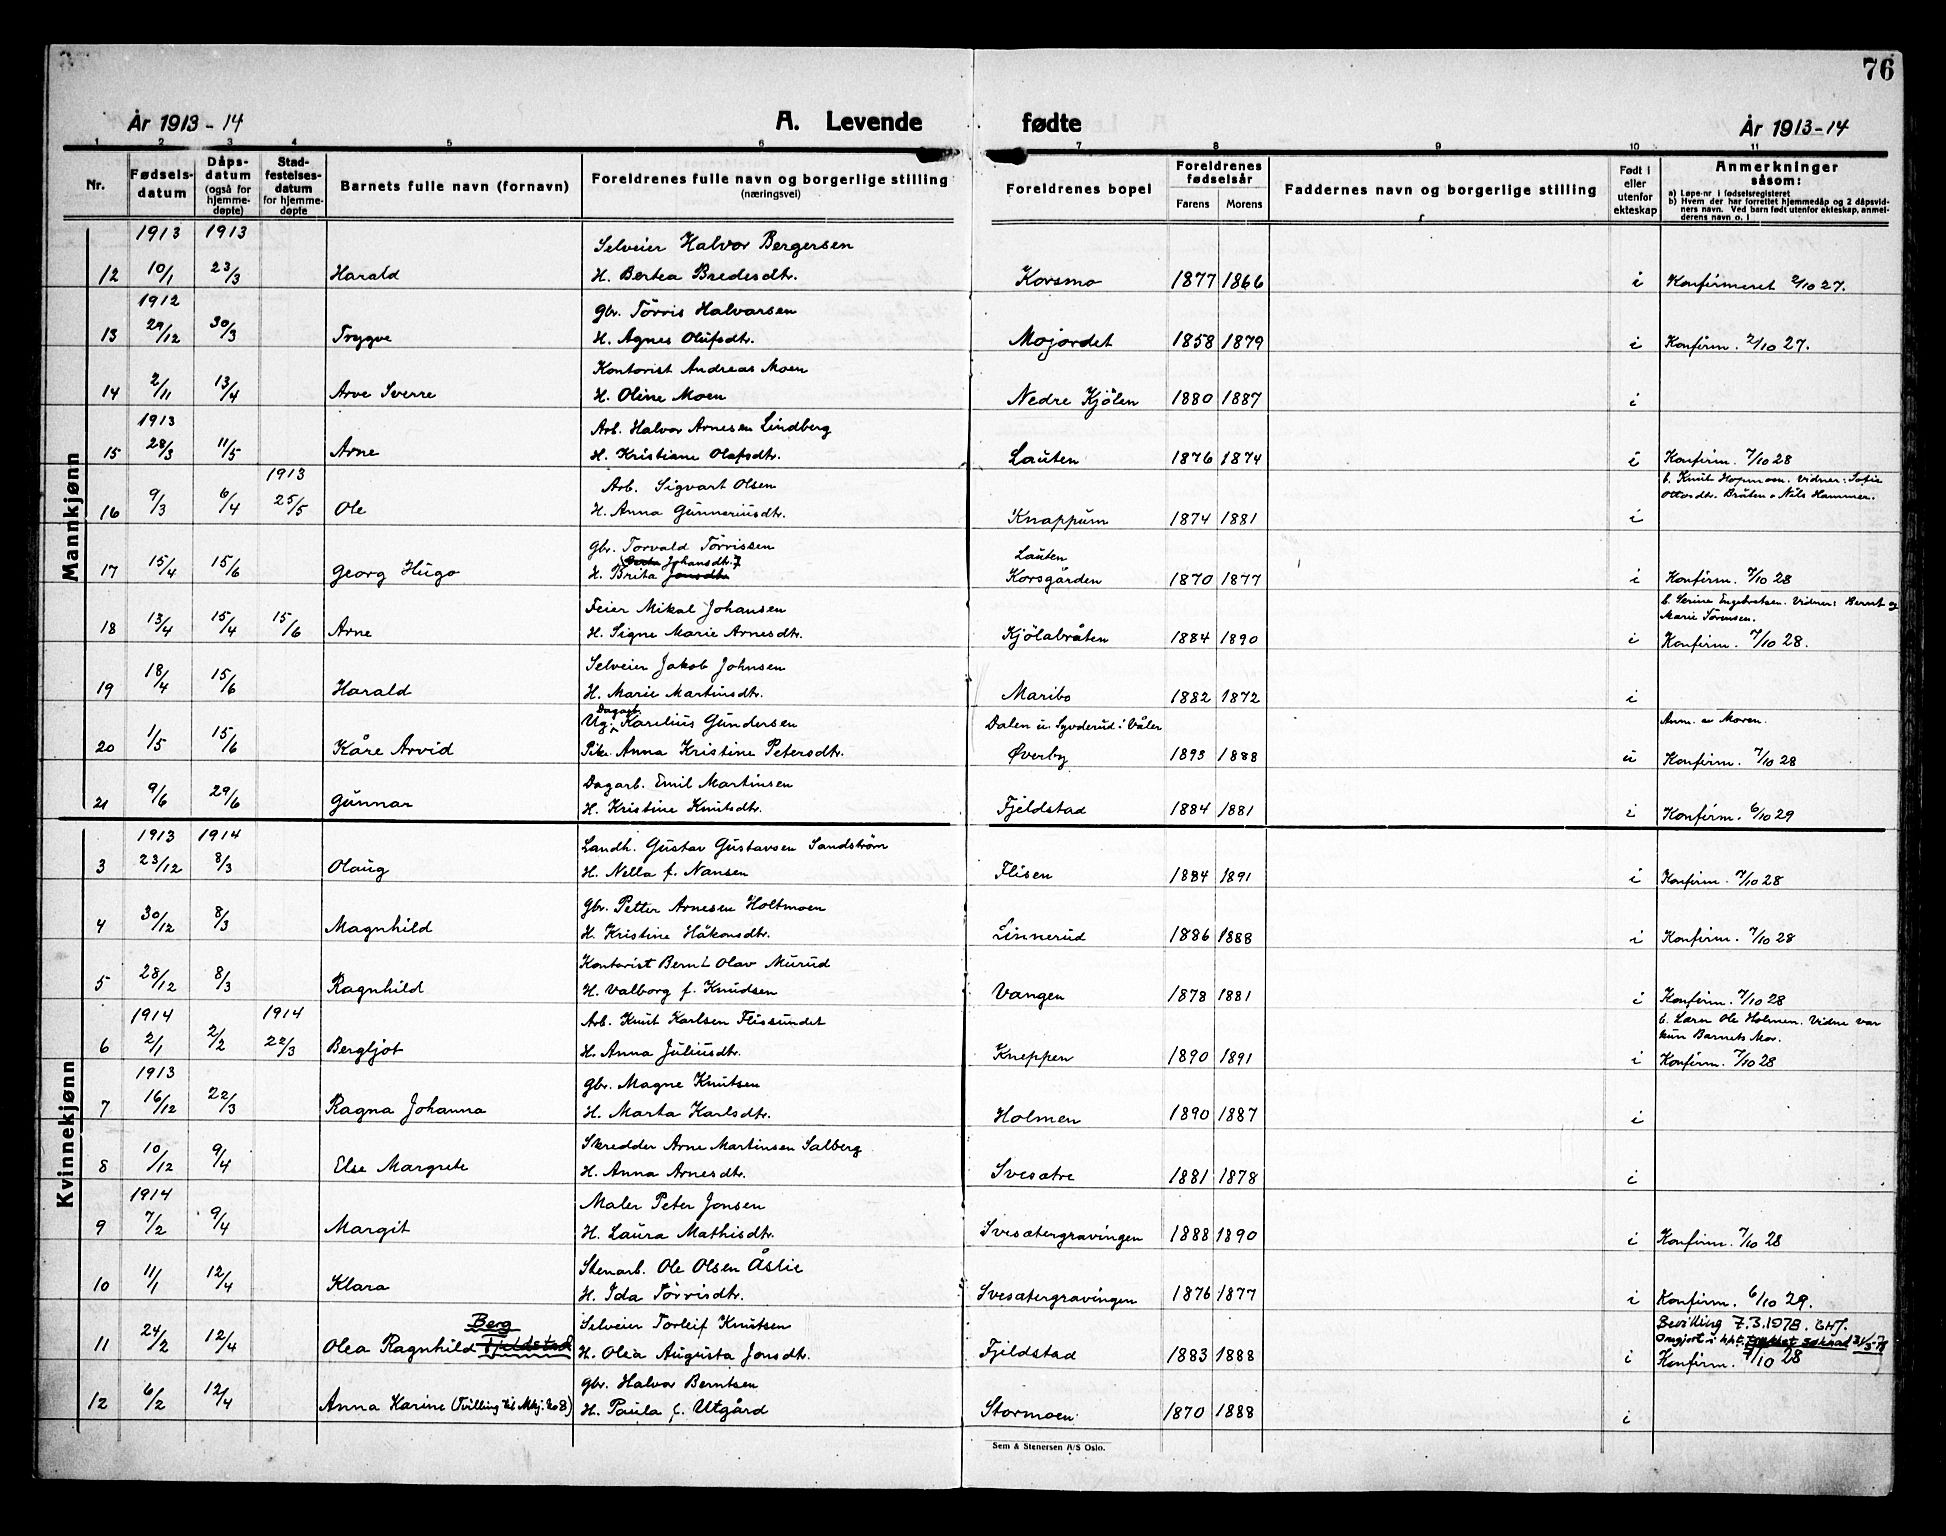 76
År 1913-14 A. Levende fødte År 1913-14
1 2 3 4 5 6 7 8 9 10 11
Nr. Fødsels-datum Dåps-datum (også for hjemme-døpte) Stad-festelses-datum for hjemme-døpte Barnets fulle navn (fornavn) Foreldrenes fulle navn og borgerlige stilling (næringsvei) Foreldrenes bopel Foreldrenes fødselsår Farens Morens Faddernes navn og borgerlige stilling Født i eller utenfor ekteskap Anmerkninger såsom:
a) Løpe-nr i fødselsregisteret
b) Hvem der har forrettet hjemmedåp og 2 dåpsvidners navn. Ved barn født utenfor ekteskap, anmelderens navn o. l
Mannkjønn
1913 1913 Selveier Halvor Bergersen
12 10/1 23/3 Harald H. Bertea Bredesdtr. Korsmo 1877 1866 i Konfirmeret 2/10 27.
1912 Gbr. Törris Halvorsen
13 29/12 30/3 Trygve H. Agnes Olufsdtr. Mojordet 1858 1879 i Konfirm. 2/10 27.
Kontorist Andreas Moen
14 2/11 13/4 Arve Sverre H. Oline Moen Nedre Kjölen 1880 1887 i
1913 Arb. Halvor Arnesen Lindberg
15 28/3 11/5 Arne H. Kristiane Olafsdtr. Lauten 1876 1874 i Konfirm. 7/10 28
1913 Arb. Sigvart Olsen b. Knut Hopmoen. Vidner: Sofie
Ottosdtr. Bråten o Nils Hammer.
16 9/3 6/4 25/5 Ole H. Anna Gunneriusdtr. Knappum 1874 1881 i
Gbr. Torvald Törrissen Lauten
Johansdtr.
17 15/4 15/6 Georg Hugo H. Brita Jonsdtr Korsgården 1870 1877 i Konfirm. 7/10 28
Feier Mikal Johansen b. Serine Engebretsen. Vidner: Bernt og
Marie Sörensen.
18 13/4 15/4 15/6 Arne H. Signe Marie Arnesdtr. Kjölabråten 1884 1890 i Konfirm. 7/10 28.
Selveier Jakob Johnsen
19 18/4 15/6 Harald H. Marie Martinsdtr. Maribo 1882 1872 i
Dagarb.
Ug. Karelius Gundersen Dalen u. Syvderud i Våler Anm. av Moren.
20 1/5 15/6 Kåre Arvid Pike Anna Kristine Petersdtr. Øverby 1893 1888 u Konfirm. 7/10 28
Dagarb. Emil Martinsen
21 9/6 29/6 Gunnar H. Kristine Knutsdtr. Fjeldstad 1884 1881 i Konfirm. 6/10 29
Kvinnekjønn
1913 1914 Landh. Gustav Gustavsen Sandström
3 23/12 8/3 Olaug H. Nella f. Nansen Flisen 1884 1891 i Konfirm. 7/10 28
Gbr. Petter Arnesen Holtmoen
4 30/12 8/3 Magnhild H. Kristine Håkonsdtr. Linnerud 1886 1888 i Konfirm. 7/10 28
Kontorist Bernt Olav Murud
5 28/12 8/3 Ragnhild H. Valborg f. Knudsen Vangen 1878 1881 i Konfirm. 7/10 28
1914 1914 Arb. Knut Karlsen Flissundet b. Lærer Ole Holmen. Vidne var
kun Barnets Mor.
6 2/1 2/2 22/3 Bergljot H. Anna Juliusdtr. Kneppen 1890 1891 i Konfirm. 7/10 28
1913 Gbr. Magne Knutsen
7 16/12 22/3 Ragna Johanna H. Marta Karlsdtr. Holmen 1890 1887 i
Skredder Arne Martinsen Salberg
8 10/12 9/4 Else Margrete H. Anna Arnesdtr. Svesætre 1881 1878 i
1914 Maler Peter Jonsen
9 7/2 9/4 Margit H. Laura Mathisdtr. Svesætergravingen 1888 1890 i Konfirm. 7/10 28
Stenarb. Ole Olsen Åslie
10 11/1 12/4 Klara H. Ida Törrisdtr. Svesætergravingen 1876 1877 i Konfirm. 6/10 29.
Berg Selveier Torleif Knutsen Bevilling 7.3.1978. EHJ.
11 24/2 12/4 Olea Ragnhild Fjeldstad H. Olea Augusta Jonsdtr. Fjeldstad 1883 1888 i Konfirm. 7/10 28
Gbr. Halvor Berntsen
12 6/2 12/4 Anna Karine (Tvilling til Mkj. No 8) H. Paula f. Utgård Stormoen 1870 1888 i
Sem & Stenersen A/S Oslo.